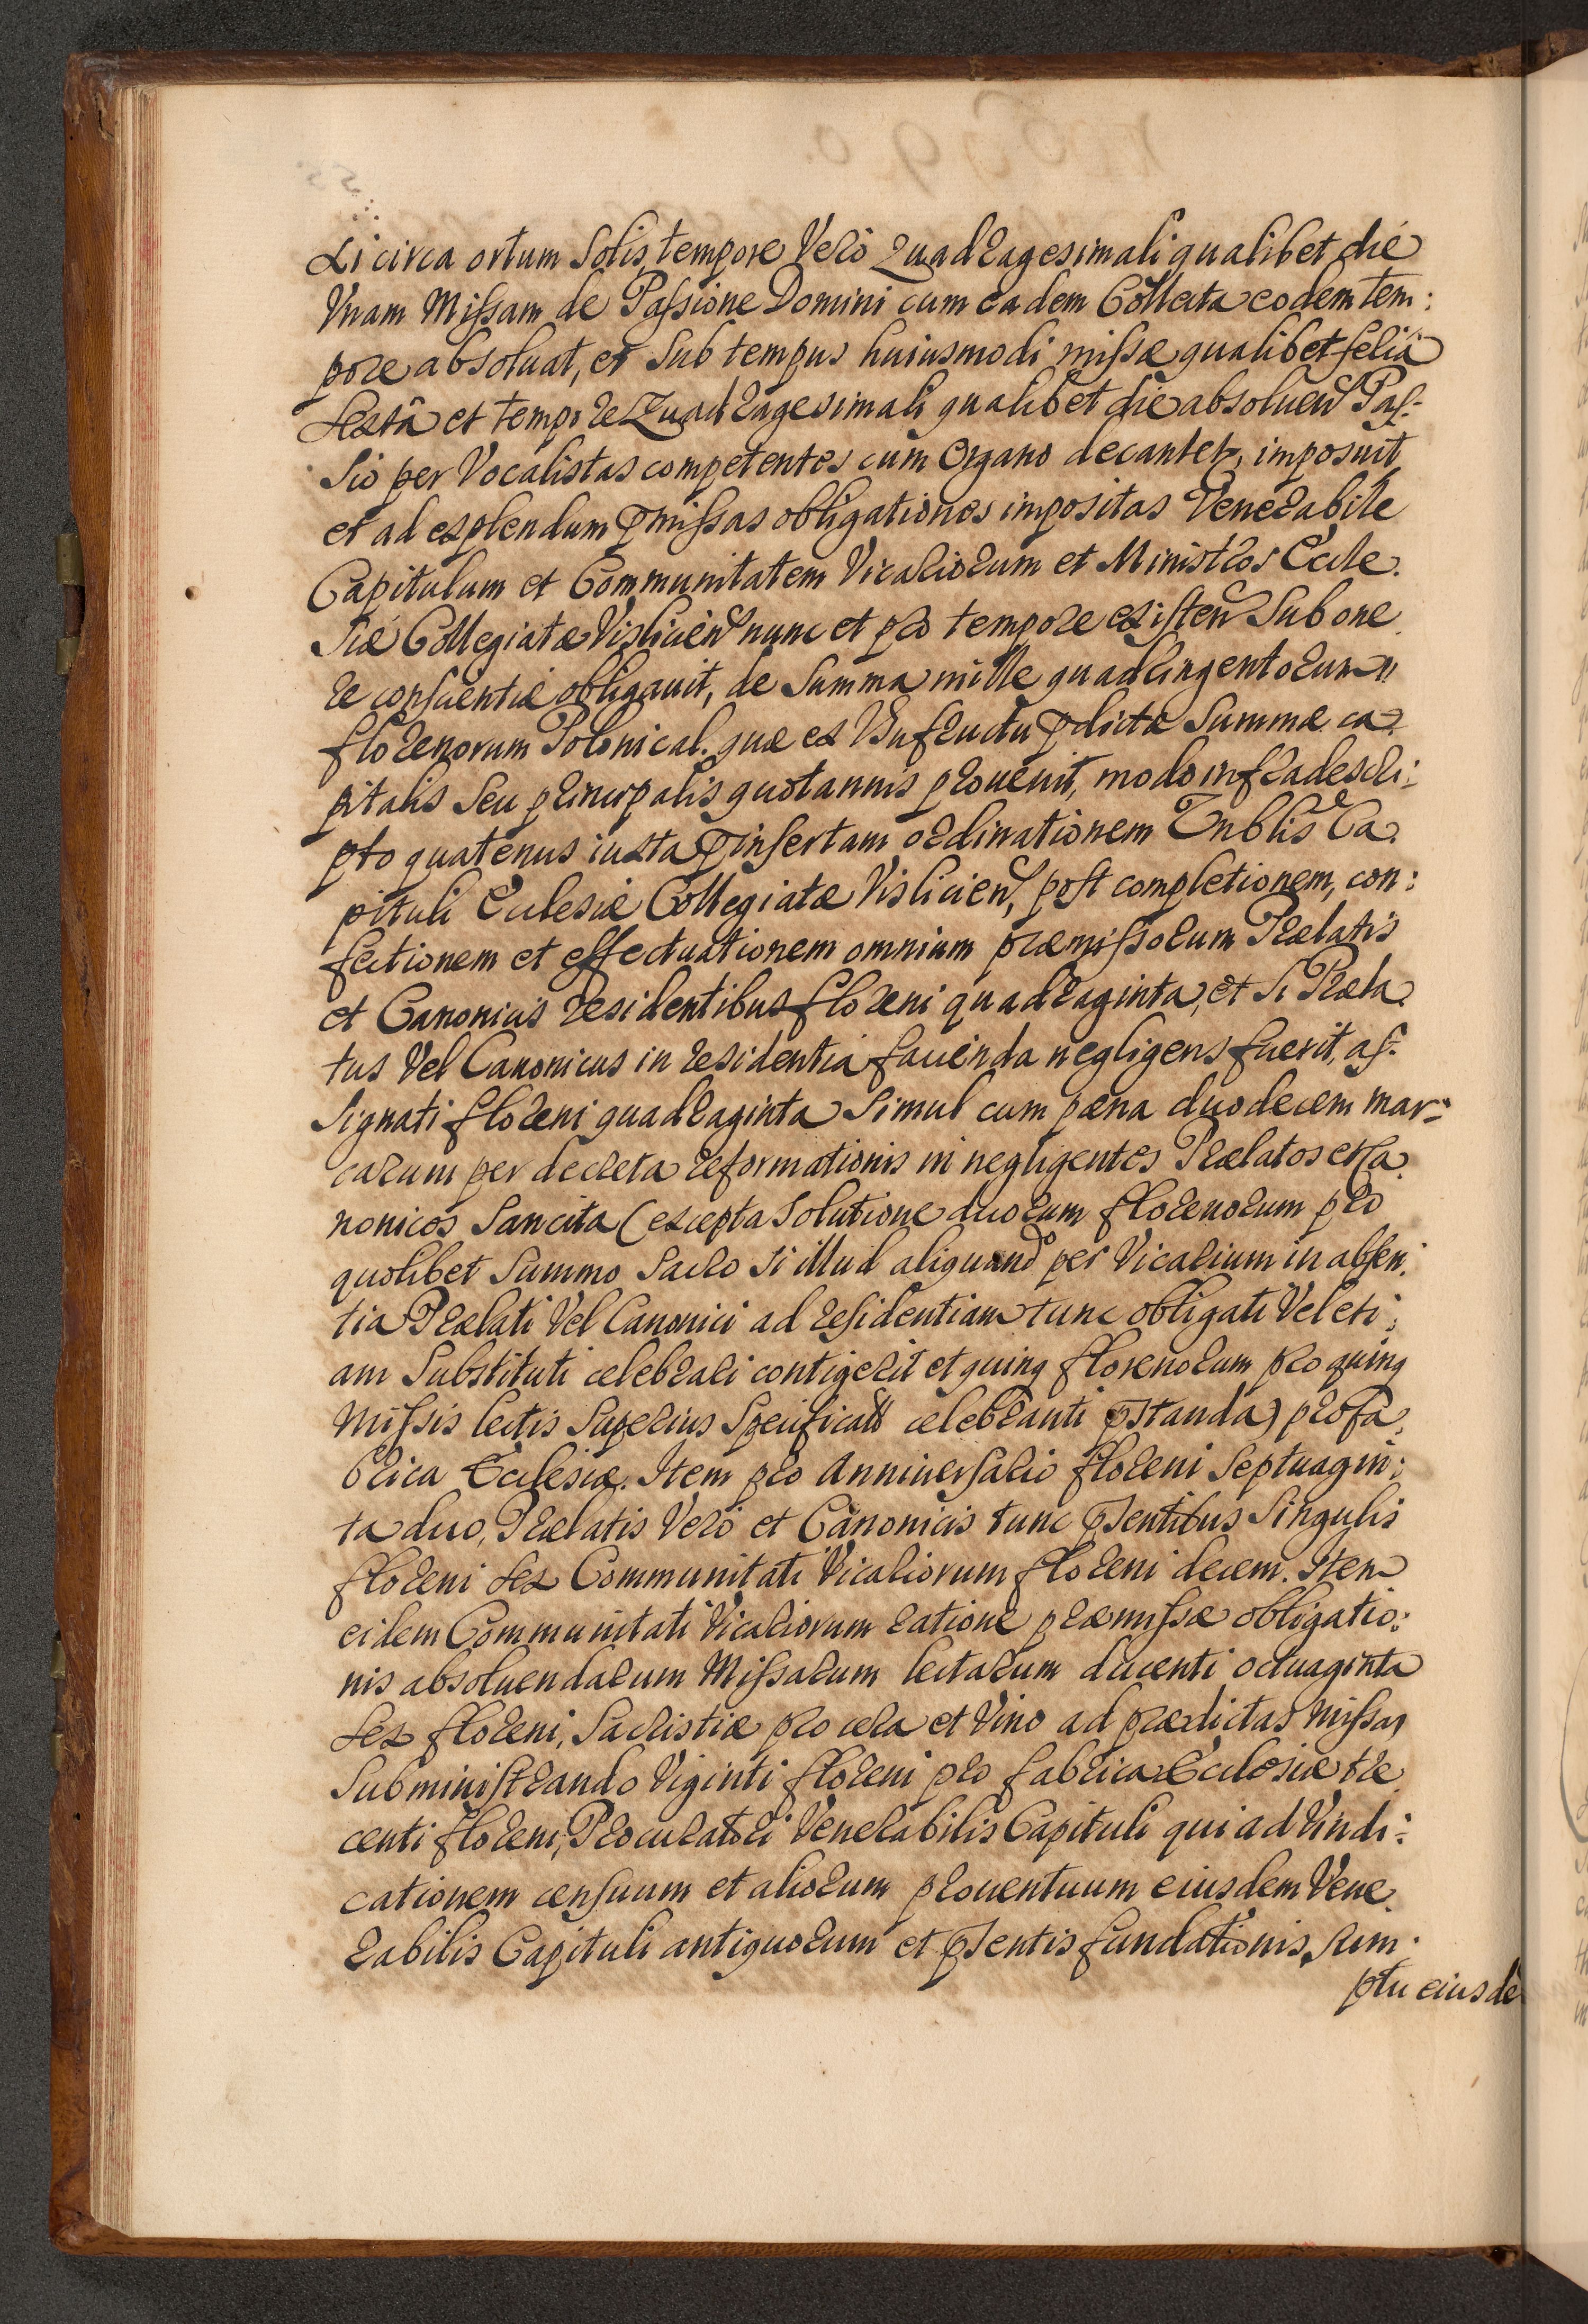 ri circa ortum Solis, tempore Verò Quadragesimali qualibet die
Vnam Missam de Passione Domini cum eadem Collecta eodem tem:
pore absoluat, et Sub tempus huiusmodi missæ qualibet feria
sextâ et tempore Quadragesimali qualibet die absoluen Pas:
sio per Vocalistas competentes cum Organo decantet, imposuit
et ad explendum pmissas obligationes impositas Venerabile
Capitulum et Communitatem Vicariorum et Ministros Eccle.
siæ Collegiatæ Vislicien nunc et pro tempore existen Sub one
re conscientiæ obligauit, de Summa mille quadringentorum
florenorum Polonical. quæ ex Vsufructu pdictæ Summæ ca
pitalis Seu principalis quotannis prouenit, modo infradescri:
pto quatenus iuxta pinsertam ordinationem Vnblis Ca
pituli Ecclesiæ Collegiatæ Vislicien, post completionem, con:
fectionem et effectuationem omnium præmissorum Prælatis
et Canonicis residentibus floreni quadraginta, et si Præla
tus Vel Canonicus in residentia facienda negligens fuerit, as:
signati floreni quadraginta Simul cum pœna duodecem mar:
carum per decreta reformationis in negligentes Prælatos et Ca
nonicos Sancita (excepta Solutione duorum florenorum pro
quolibet Summo Sacro si illud aliquando per Vicarium in absen.
tia Prælati Vel Canonici ad residentiam tunc obligati Vel eti:
am Substituti celebrari contigerit et quinq florenorum pro quinq
Missis lectis Superius Specificatis celebranti pstanda) pro fa
brica Ecclesiæ. Item pro Anniuersario floreni Septuagin:
ta duo, Prælatis Verò et Canonicis tunc psentibus Singulis
floreni sex Communitati Vicariorum floreni decem. Item
eidem Communitati Vicariorum ratione præmissæ obligatio:
nis absoluendarum Missarum lectarum ducenti octuaginta
sex floreni, Sacristiæ pro cera et Vino ad prædictas Missas
Subministrando Viginti floreni pro fabrica Ecclesiæ tre
centi floreni, Procuratori Venerabilis Capituli qui ad Vindi:
cationem censuum et aliorum prouentuum eiusdem Vene
rabilis Capituli antiquorum et psentis fundationis, Sum:
ptu eiusdē